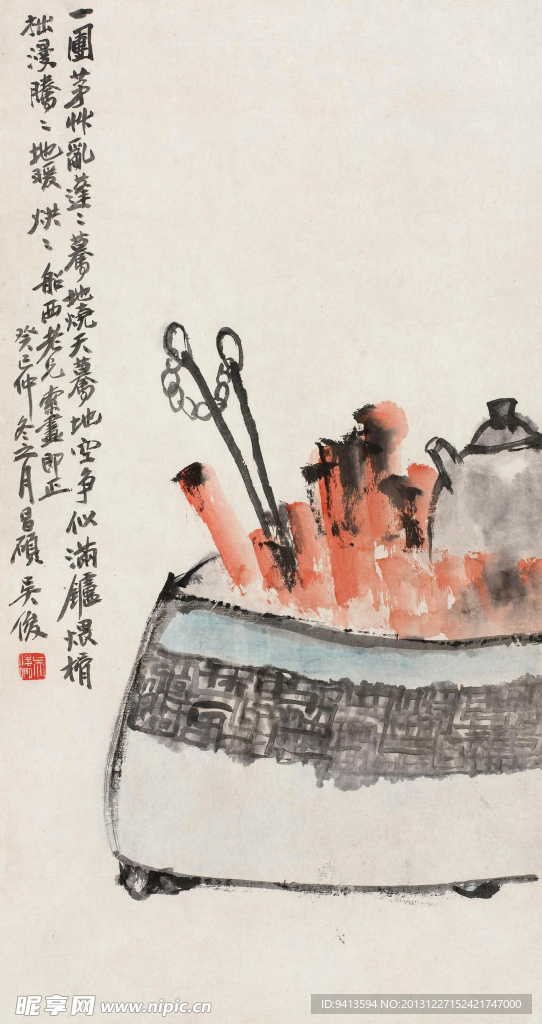 一團茅草亂蓬〻驀地燒天驀地空爭似滿鑪煨榾
柮漫騰〻地暖烘〻船西老兄索畫即正
癸巳仲冬之月昌碩吳俊
昵享网 www.nipic.cn
ID:9413594 NO:20131227152421747000